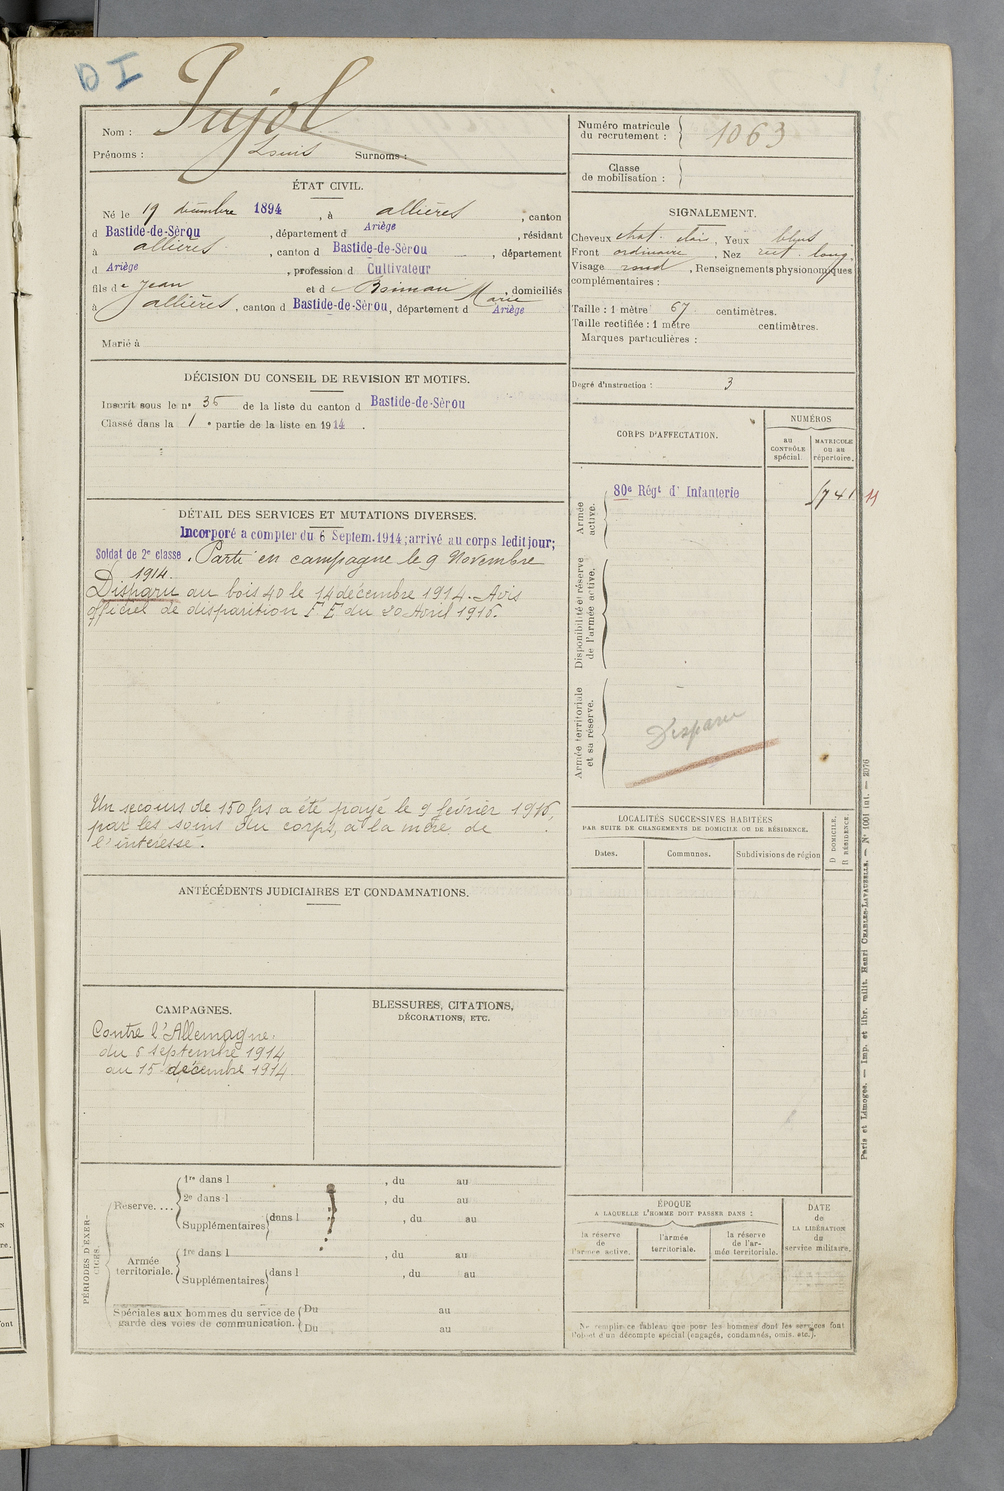 DI
Pujol
Nom :
Prénoms : Louis Surnoms :
ÉTAT CIVIL.
Né le 19 décembre 1894, à allières, canton
d Bastide-de-Sérou, département d Ariège, résidant
à allières, canton d Bastide-de-Sérou, département
d Ariège, profession d Cultivateur
fils de Jean et d Marie, domiciliés
à allières, canton d Bastide-de-Sérou, département d Ariège
Marié à
DÉCISION DU CONSEIL DE REVISION ET MOTIFS.
Inscrit sous le nº 36 de la liste du canton d Bastide-de-Sérou
Classé dans la 1e partie de la liste en 1914.
DÉTAIL DES SERVICES ET MUTATIONS DIVERSES.
Incorporé a compter du 6 Septem. 1914; arrivé au corps ledit jour;
Soldat de 2e classe. Parti en campagne le 9 Novembre
1914.
Disparu au bois 40 le 14 décembre 1914. Avis
officiel de disparition F E du 20 Avril 1916.
Un secours de 150 frs a été payé le 9 février 1916,
par les soins du corps, à la mère de
l'intéressé.
ANTÉCÉDENTS JUDICIAIRES ET CONDAMNATIONS.
CAMPAGNES.
Contre l'Allemagne.
du 6 septembre 1914
au 15 décembre 1914
BLESSURES, CITATIONS,
DÉCORATIONS, ETC.
PÉRIODES D'EXER-
CICES.
Réserve....
1re dans l , du au
2e dans l , du au
Supplémentaires dans l , du au
Armée
territoriale.
1re dans l , du au
Supplémentaires dans l , du au
Spéciales aux hommes du service de
garde des voies de communication.
Du au
Du au
Numéro matricule
du recrutement : 1063
Classe
de mobilisation :
SIGNALEMENT.
Cheveux chat. clair, Yeux bleus
Front ordinaire, Nez rect. long.
Visage rond, Renseignements physionomiques
complémentaires :
Taille : 1 mètre 67 centimètres.
Taille rectifiée : 1 mètre centimètres.
Marques particulières :
Degré d'instruction : 3
CORPS D'AFFECTATION.
NUMÉROS
AU
CONTRÔLE
spécial.
MATRICULE
OU AU
répertoire.
Armée
active.
80e Régt d'Infanterie
Disponibilité et réserve
de l'armée active.
Armée territoriale
et sa réserve.
Disparu
LOCALITÉS SUCCESSIVES HABITÉES
PAR SUITE DE CHANGEMENTS DE DOMICILE OU DE RÉSIDENCE.
Dates.
Communes.
Subdivisions de région
D DOMICILE.
R RÉSIDENCE.
ÉPOQUE
A LAQUELLE L'HOMME DOIT PASSER DANS :
la réserve
de
l'armée active.
l'armée
territoriale.
la réserve
de l'ar-
mée territoriale.
DATE
de
LA LIBÉRATION
du
service militaire.
Ne remplir ce tableau que pour les hommes dont les services font
l'objet d'un décompte spécial (engagés, condamnés, omis, etc.).
Paris et Limoges. — Imp. et libr. milit. Henri CHARLES-LAVAUZELLE. — Nº 1001 int. — 2076